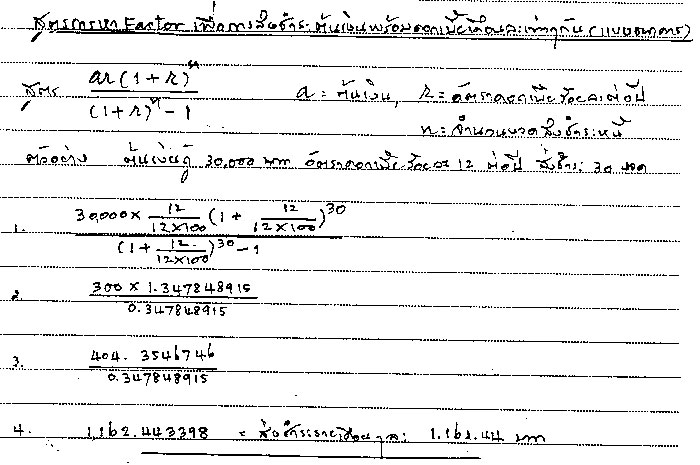 สูตรการหา Factor เพื่อการส่งชำระต้นเงินพร้อมดอกเบี้ยเดือนละเท่าๆกัน (แบบธนาคาร)
สูตร ar(1+r)^n / (1+r)^n - 1 a = ต้นเงิน, r = อัตราดอกเบี้ยร้อยละต่อปี
n = จำนวนงวดส่งชำระหนี้
ตัวอย่าง ต้นเงินกู้ 30,000 บาท อัตราดอกเบี้ยร้อยละ 12 ต่อปี ส่งชำระ 30 งวด
1. 30,000 x 12/12x100 (1 + 12/12x100)^30 / (1 + 12/12x100)^30 - 1
2. 300 x 1.347848915 / 0.347848915
3. 404.3546746 / 0.347848915
4. 1,162.443398 = ส่งชำระรายเดือนๆละ 1,162.44 บาท